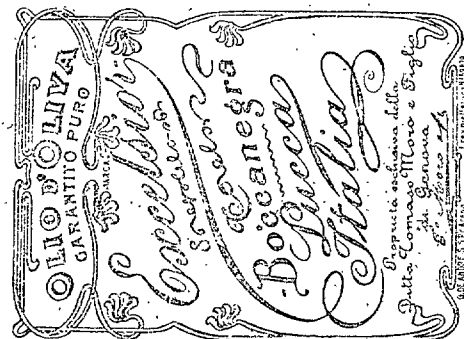 OLIO D'OLIVA
GARANTITO PURO
MARCA
Excelsior
Boccanegra
Lucca
Italia
Proprietà esclusiva della
Ditta Tomaso Moro e Figlio
da Genova